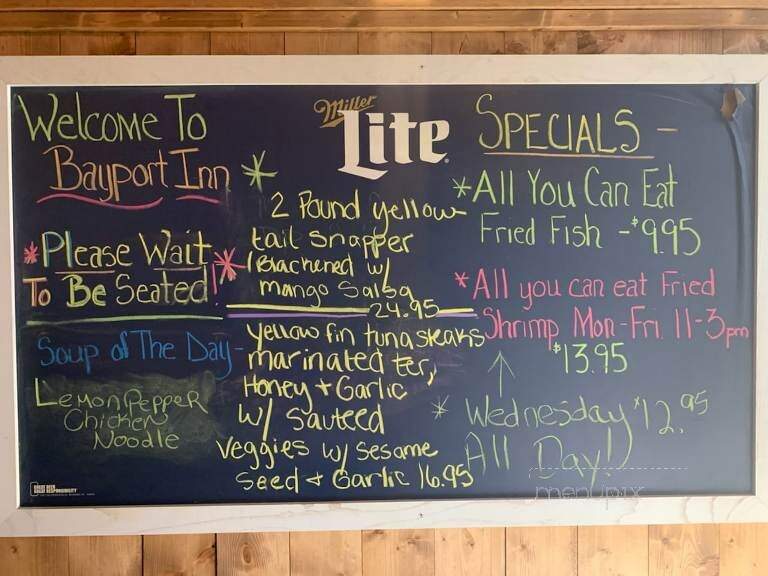 Welcome To
Bayport Inn
*Please Wait
To Be Seated!*
Soup of The Day-
Lemon Pepper
Chicken
Noodle
Miller
Lite
* 2 Pound yellow
tail snapper
(Blackened w/
mango Salsa
24.95
yellow fin tuna steaks
marinated ter,
Honey + Garlic
w/ Sauteed
Veggies w/ sesame
Seed + Garlic 16.95
SPECIALS -
*All You Can Eat
Fried Fish - $9.95
*All you can eat Fried
Shrimp Mon-Fri. 11-3pm
$13.95
* Wednesday $12.95
All Day!
GREAT BEER
GREAT RESPONSIBILITY
menupix